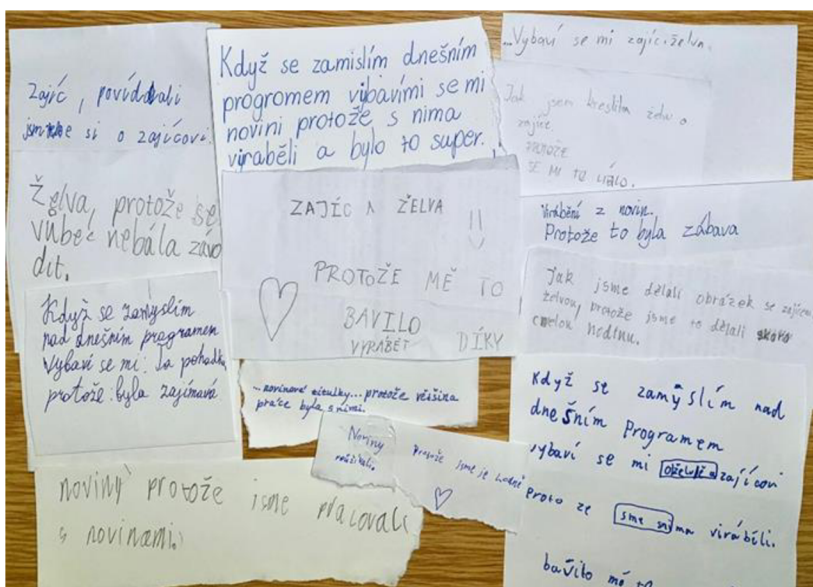 Zajíc, povídali
jsme si o zajícovi.
Želva, protože se
vůbec nebála závo
dit.
Když se zamyslím
nad dnešním programem
Vybaví se mi: Ta pohádka
protože: byla zajímavá
noviny protože jsme pracovali
s novinami.
Když se zamislím dnešním
programem vibavími se mi
novini protože s nima
viraběli a bylo to super.
ZAJÍC A ŽELVA
PROTOŽE MĚ TO
BAVILO
VYRÁBĚT DÍKY
...novinové
protože většina
práce byla s nimi.
Noviny
Protože jsme je hodně
...Vybaví se mi zajíc a želva.
Jak jsem kreslila želvu a
zajíce.
PROTOŽE
SE MI TO LÍBILO.
Virábění z novin.
Protože to byla zábava
Jak jsme dělali obrázek se zajícem
želvou, protože jsme to dělali skoro
celou hodinu.
Když se zamýslím nad
dnešním Programem
vybaví se mi oželvě a zajícovi
Proto že sme s nima virábĕli.
bavilo mě to